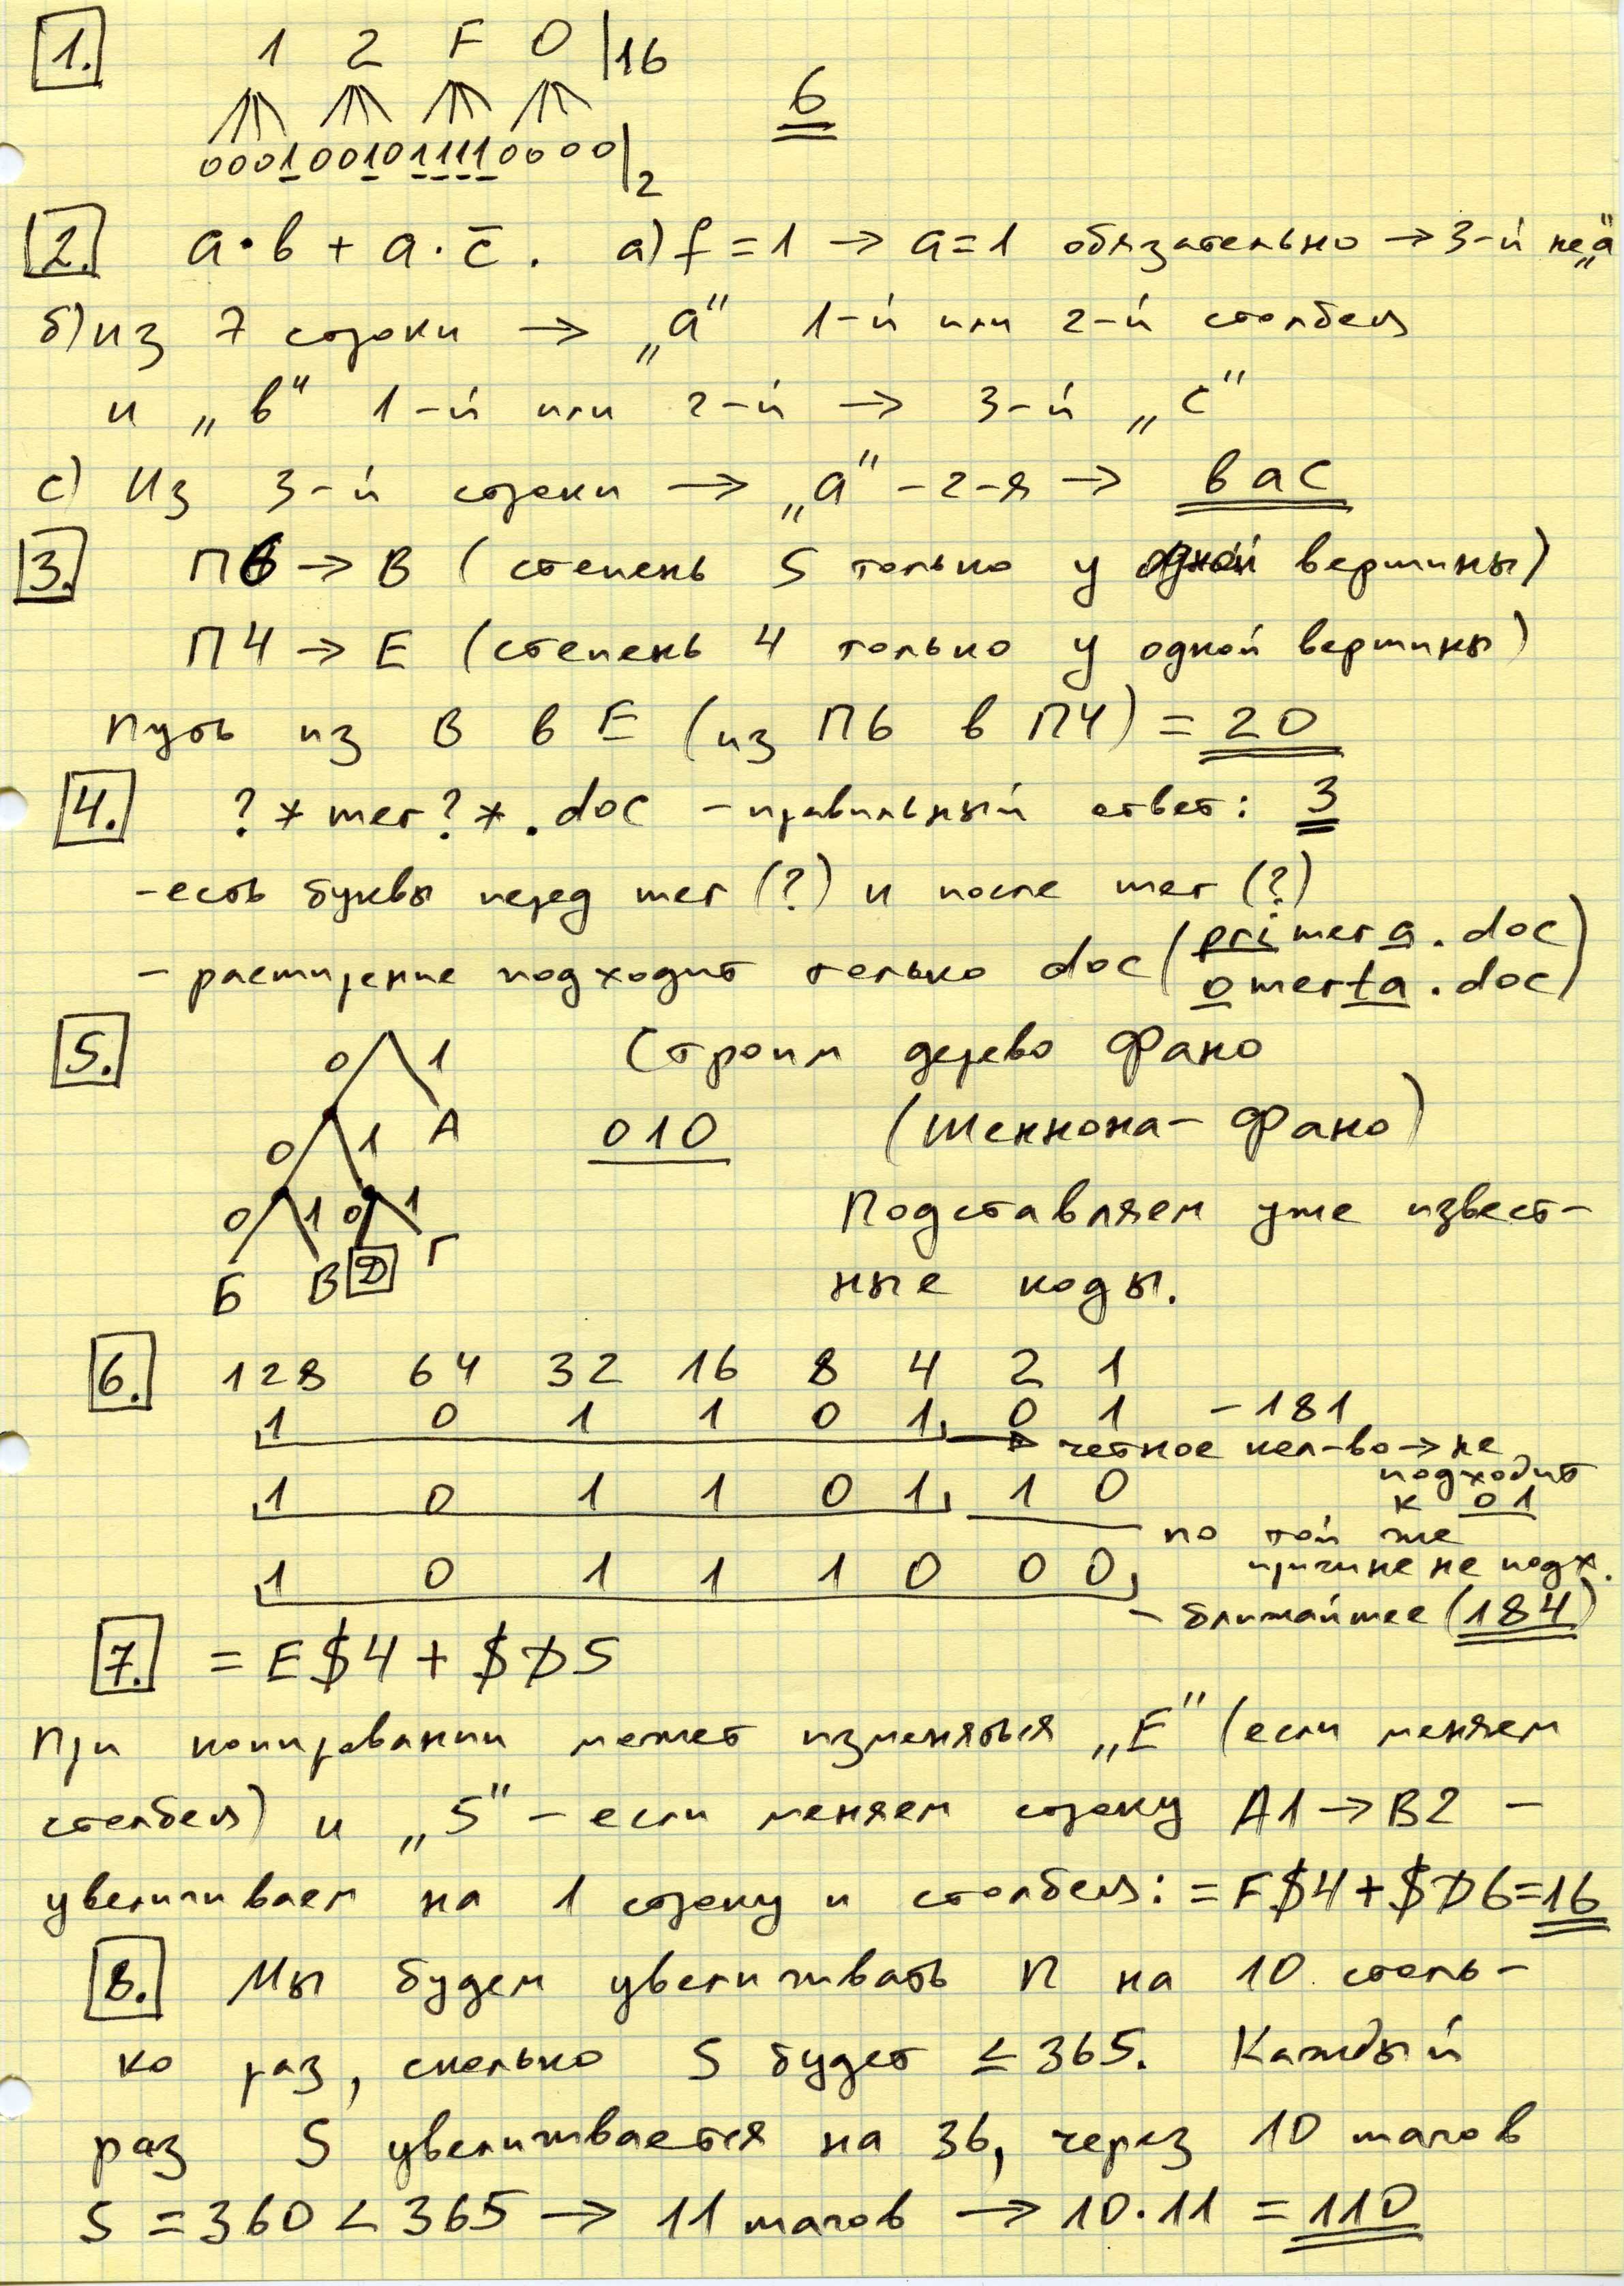 1. 1 2 F 0 |16
6
0001001011110000|2
2. a·b + a·c̄. a) f=1 → a=1 обязательно → 3-й не „a"
б) из 7 строки → „a" 1-й или 2-й столбец
и „в" 1-й или 2-й → 3-й „c"
c) Из 3-й строки → „a" - 2-я → вac
3. П6 → В (степень 5 только у одной вершины)
П4 → Е (степень 4 только у одной вершины)
Путь из В в Е (из П6 в П4) = 20
4. ?*mer?*.doc - правильный ответ: 3
- есть буквы перед mer (?) и после mer (?)
- расширение подходит только doc (primera.doc
omerta.doc)
5. 0 1 Строим дерево Фано
0 1 А 010 (Шеннона-Фано)
0 1 0 1 Подставляем уже извест-
Б В Д Г ные коды.
6. 128 64 32 16 8 4 2 1
1 0 1 1 0 1 0 1 - 181
→ четное кол-во → не
подходит
1 0 1 1 0 1 1 0 к 01
по той же
1 0 1 1 1 0 0 0 причине не подх.
- ближайшее (184)
7. = E$4 + $D5
При копировании может изменяться „E" (если меняем
столбец) и „5" - если меняем строку A1 → B2 -
увеличиваем на 1 строку и столбец: = F$4+$D6=16
8. Мы будем увеличивать n на 10 столь-
ко раз, сколько S будет ≤ 365. Каждый
раз S увеличивается на 36, через 10 шагов
S = 360 < 365 → 11 шагов → 10·11 = 110